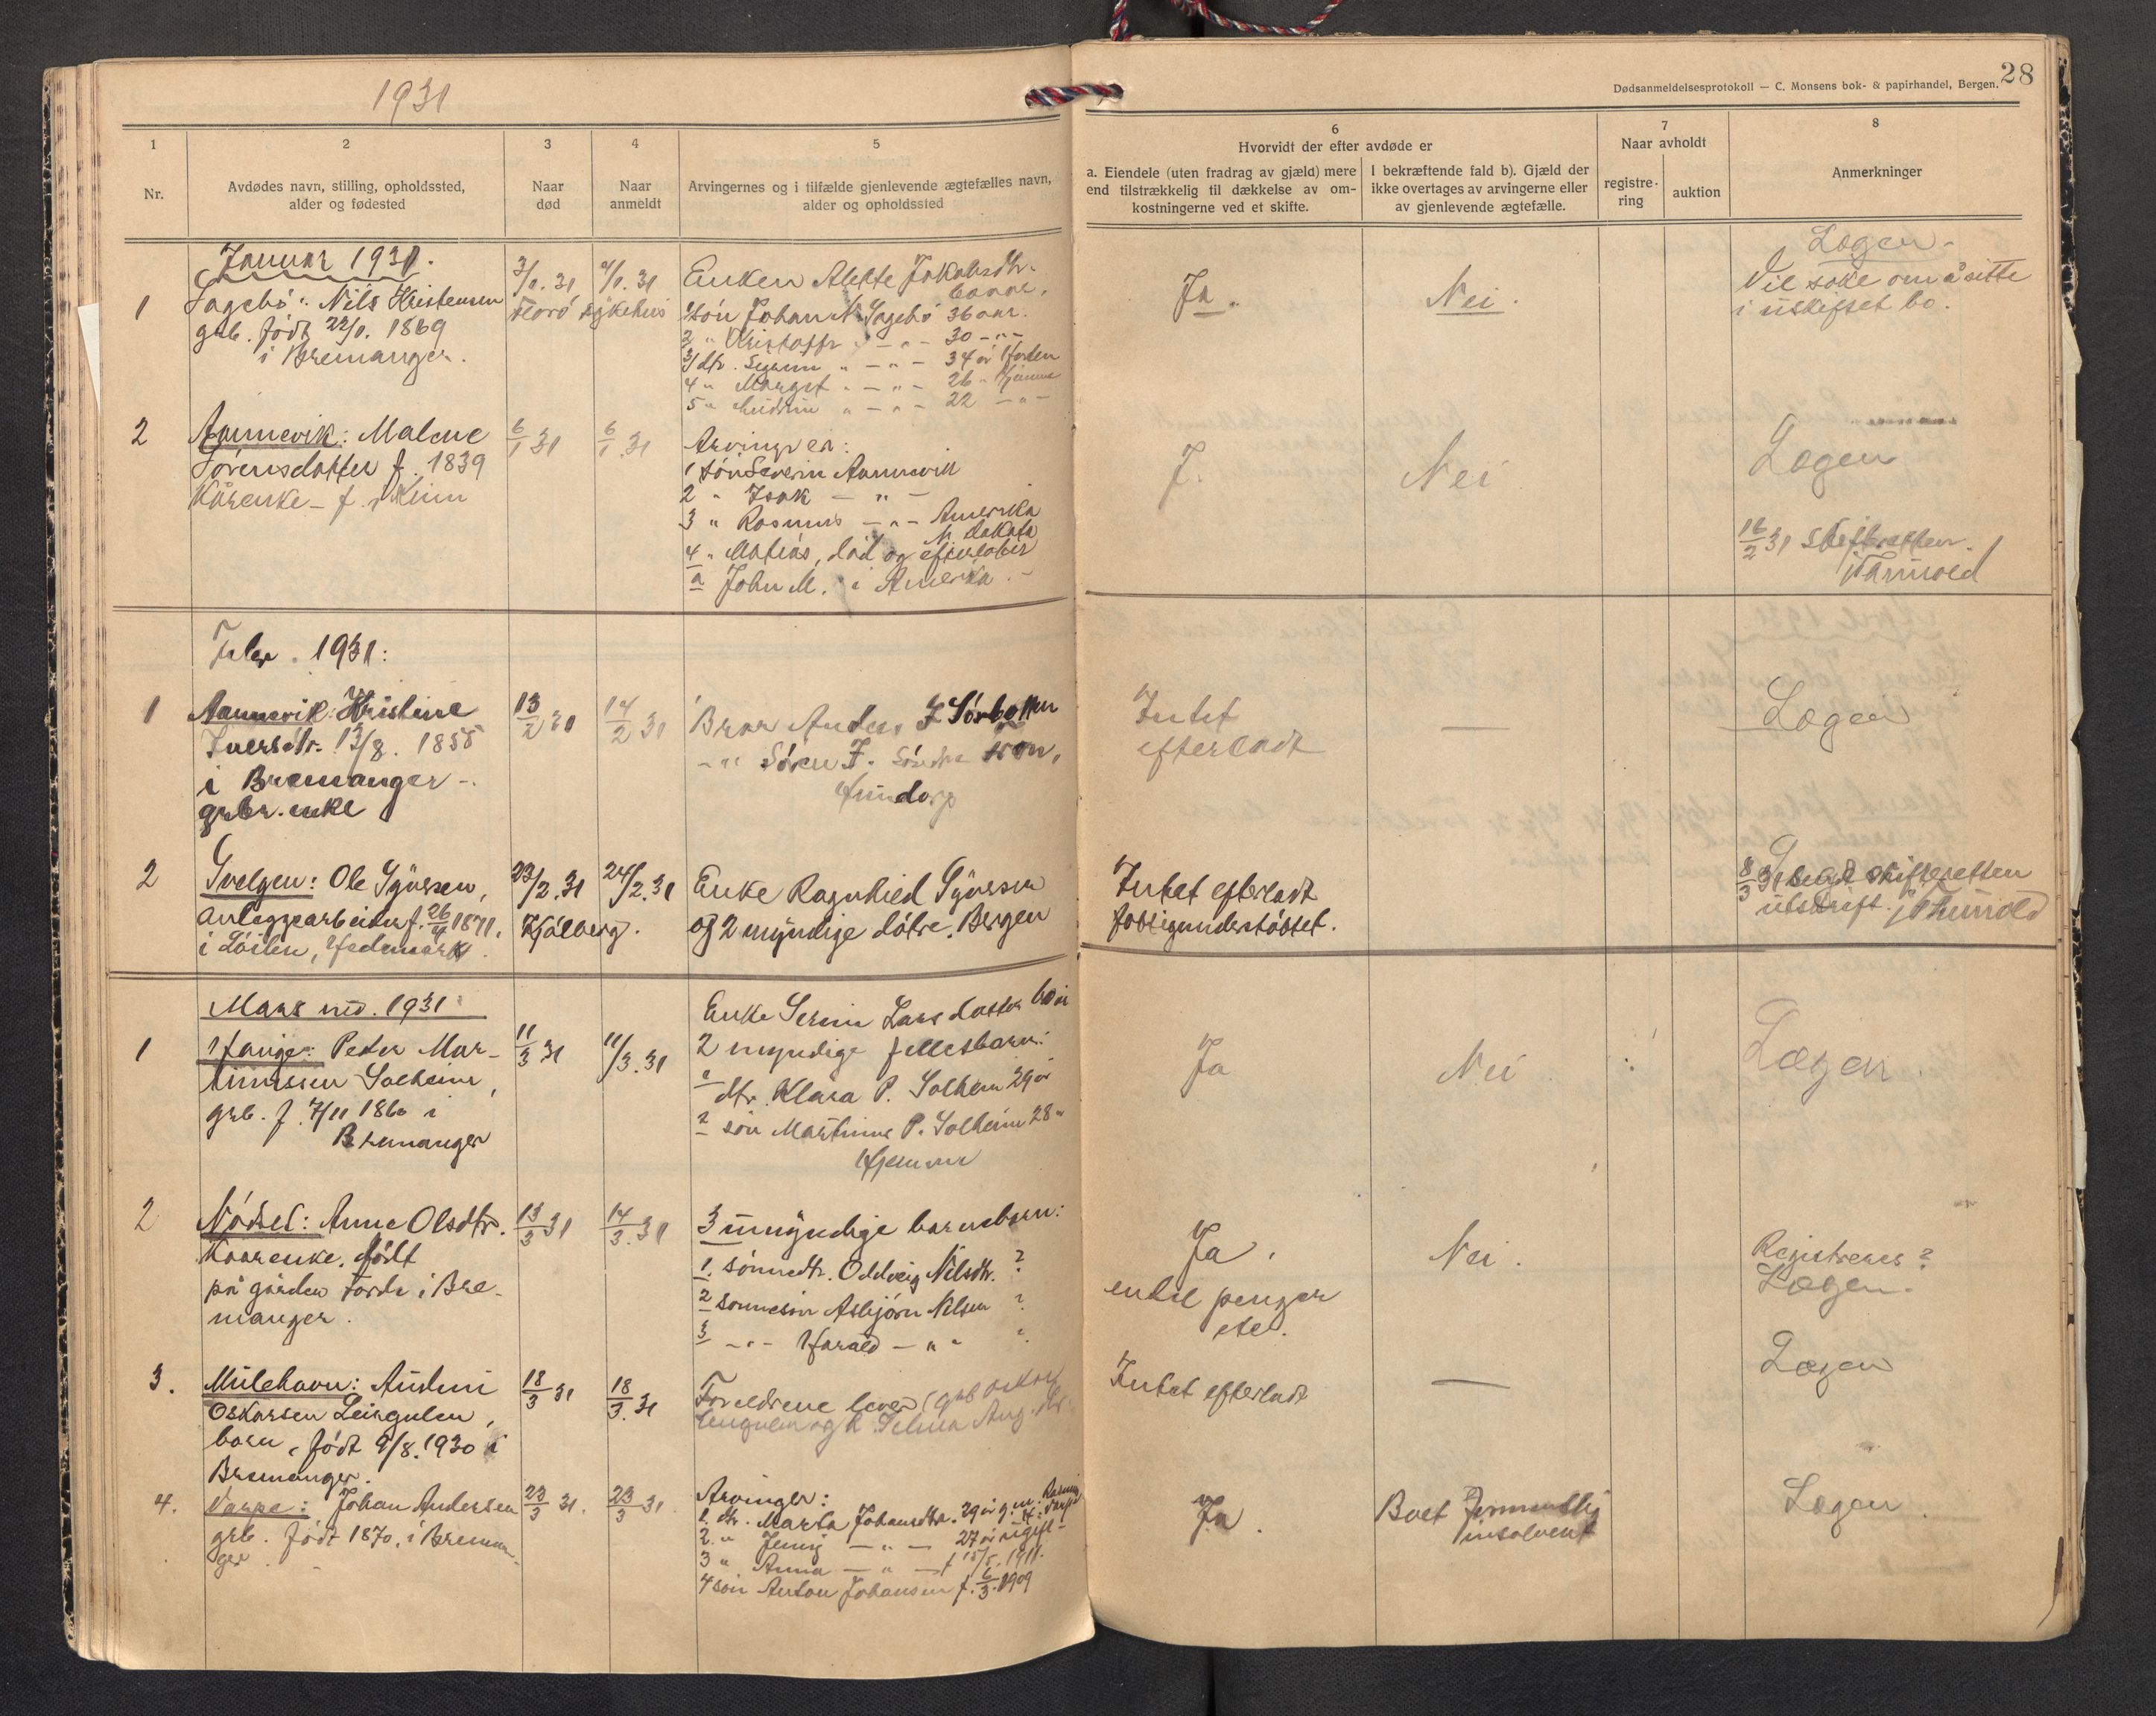 1931
28
Dødsanmeldelsesprotokoll — C. Monsens bok- & papirhandel, Bergen.
1
Nr.
2
Avdødes navn, stilling, opholdssted,
alder og fødested
3
Naar
død
4
Naar
anmeldt
5
Arvingernes og i tilfælde gjenlevende ægtefælles navn,
alder og opholdssted
6
Hvorvidt der efter avdøde er
a. Eiendele (uten fradrag av gjæld) mere
end tilstrækkelig til dækkelse av om-
kostningerne ved et skifte.
I bekræftende fald b). Gjæld der
ikke overtages av arvingerne eller
av gjenlevende ægtefælle.
7
Naar avholdt
registre-
ring
auktion
8
Anmerkninger
Januar 1931.
1
Sagebø: Nils Kristensen
grb. født 22/1. 1869
i Bremanger.
3/1. 31
Florø sykehus
4/1. 31
Enken Alette Jakobsdtr.
60 aar.
1 søn Johan N. Sagebø 36 aar.
2 " Kristoffer " — " — 30 — " —
3/ dtr. " — " — 34 år
4 " Margit " — " — 26 " Hjemme
5 " " — " — 22 — " —
Ja.
Nei.
Logen.
Vil søke om å sitte
i uskiftet bo.
2
Aannevik: Malene
Sørensdatter f. 1839
Kårenke — f. i Kinn
6/1 31
6/1. 31
Arvinger er:
1 søn Severin Aannevik
2 " Isak — " —
3 " Rasmus — " — Amerika
N. Dakota
4 " Matias, død og efterlater
a John M. i Amerika. —
J.
Nei
Logen
16/2 31 skifteretten.
Febr. 1931:
1
Aannevik: Kristine
Iversdtr. 13/8. 1858
i Bremanger —
grbr. enke
13/2 31
14/2 31
Bror Anders I Sørbotten
— " Søren I. Søndre
Intet
efterladt
—
Logen
2
Svelgen: Ole Syversen,
anleggsarbeider f. 26/4 1871.
i Løiten, Hedemark.
23/2. 31
Kjølberg.
24/2. 31
Enke Ragnhild Syversen
og 2 myndige døtre, Bergen
Intet efterladt
fattigunderstøttet.
8/3 31 sendt skifteretten
utskrift.
Mars md. 1931
1
Hauge: Peder Mar-
tinussen Solheim,
grb. f. 7/11 1860 i
Bremanger
11/3 31
11/3. 31
Enke Serine Larsdatter 60 år
2 myndige fellesbarn:
1 dtr. Klara P. Solheim 29 år
2 søn Martinus P. Solheim 28 "
Hjemme
Ja
Nei
Logen.
2
Nødset: Anne Olsdtr.
Kaarenke. født
på gården Førde i Bre-
manger.
13/3 31
14/3. 31
3 umyndige barnebarn:
1. sønnedtr. Oddveig Nilsdtr. ?
2 sønnesøn Asbjørn Nilsen ?
3 — " — Harald — " —
Ja.
endel penger
etc.
Nei.
Registreres?
Logen.
3.
Mulehavn: Audun
Oskarsen Leirgulen,
barn, født 9/8. 1930 i
Bremanger.
18/3 31
18/3. 31
Foreldrene lever (grb Oskar
Leirgulen og h. Selma Aug. dtr.
Intet efterladt
—
Logen
4.
Varpe: Johan Andersen
grb. født 1870. i Breman-
ger
23/3 31.
23/3 31.
Arvinger:
1. dtr. Marta Johansdtr. 29 år g. m. Rasmus
2. " Jenny — " — 27 år ugift —
3 " Anna — " — f 15/5. 1911.
4 søn Anton Johansen f. 6/3. 1909
Ja.
Boet
insolvent
Logen.